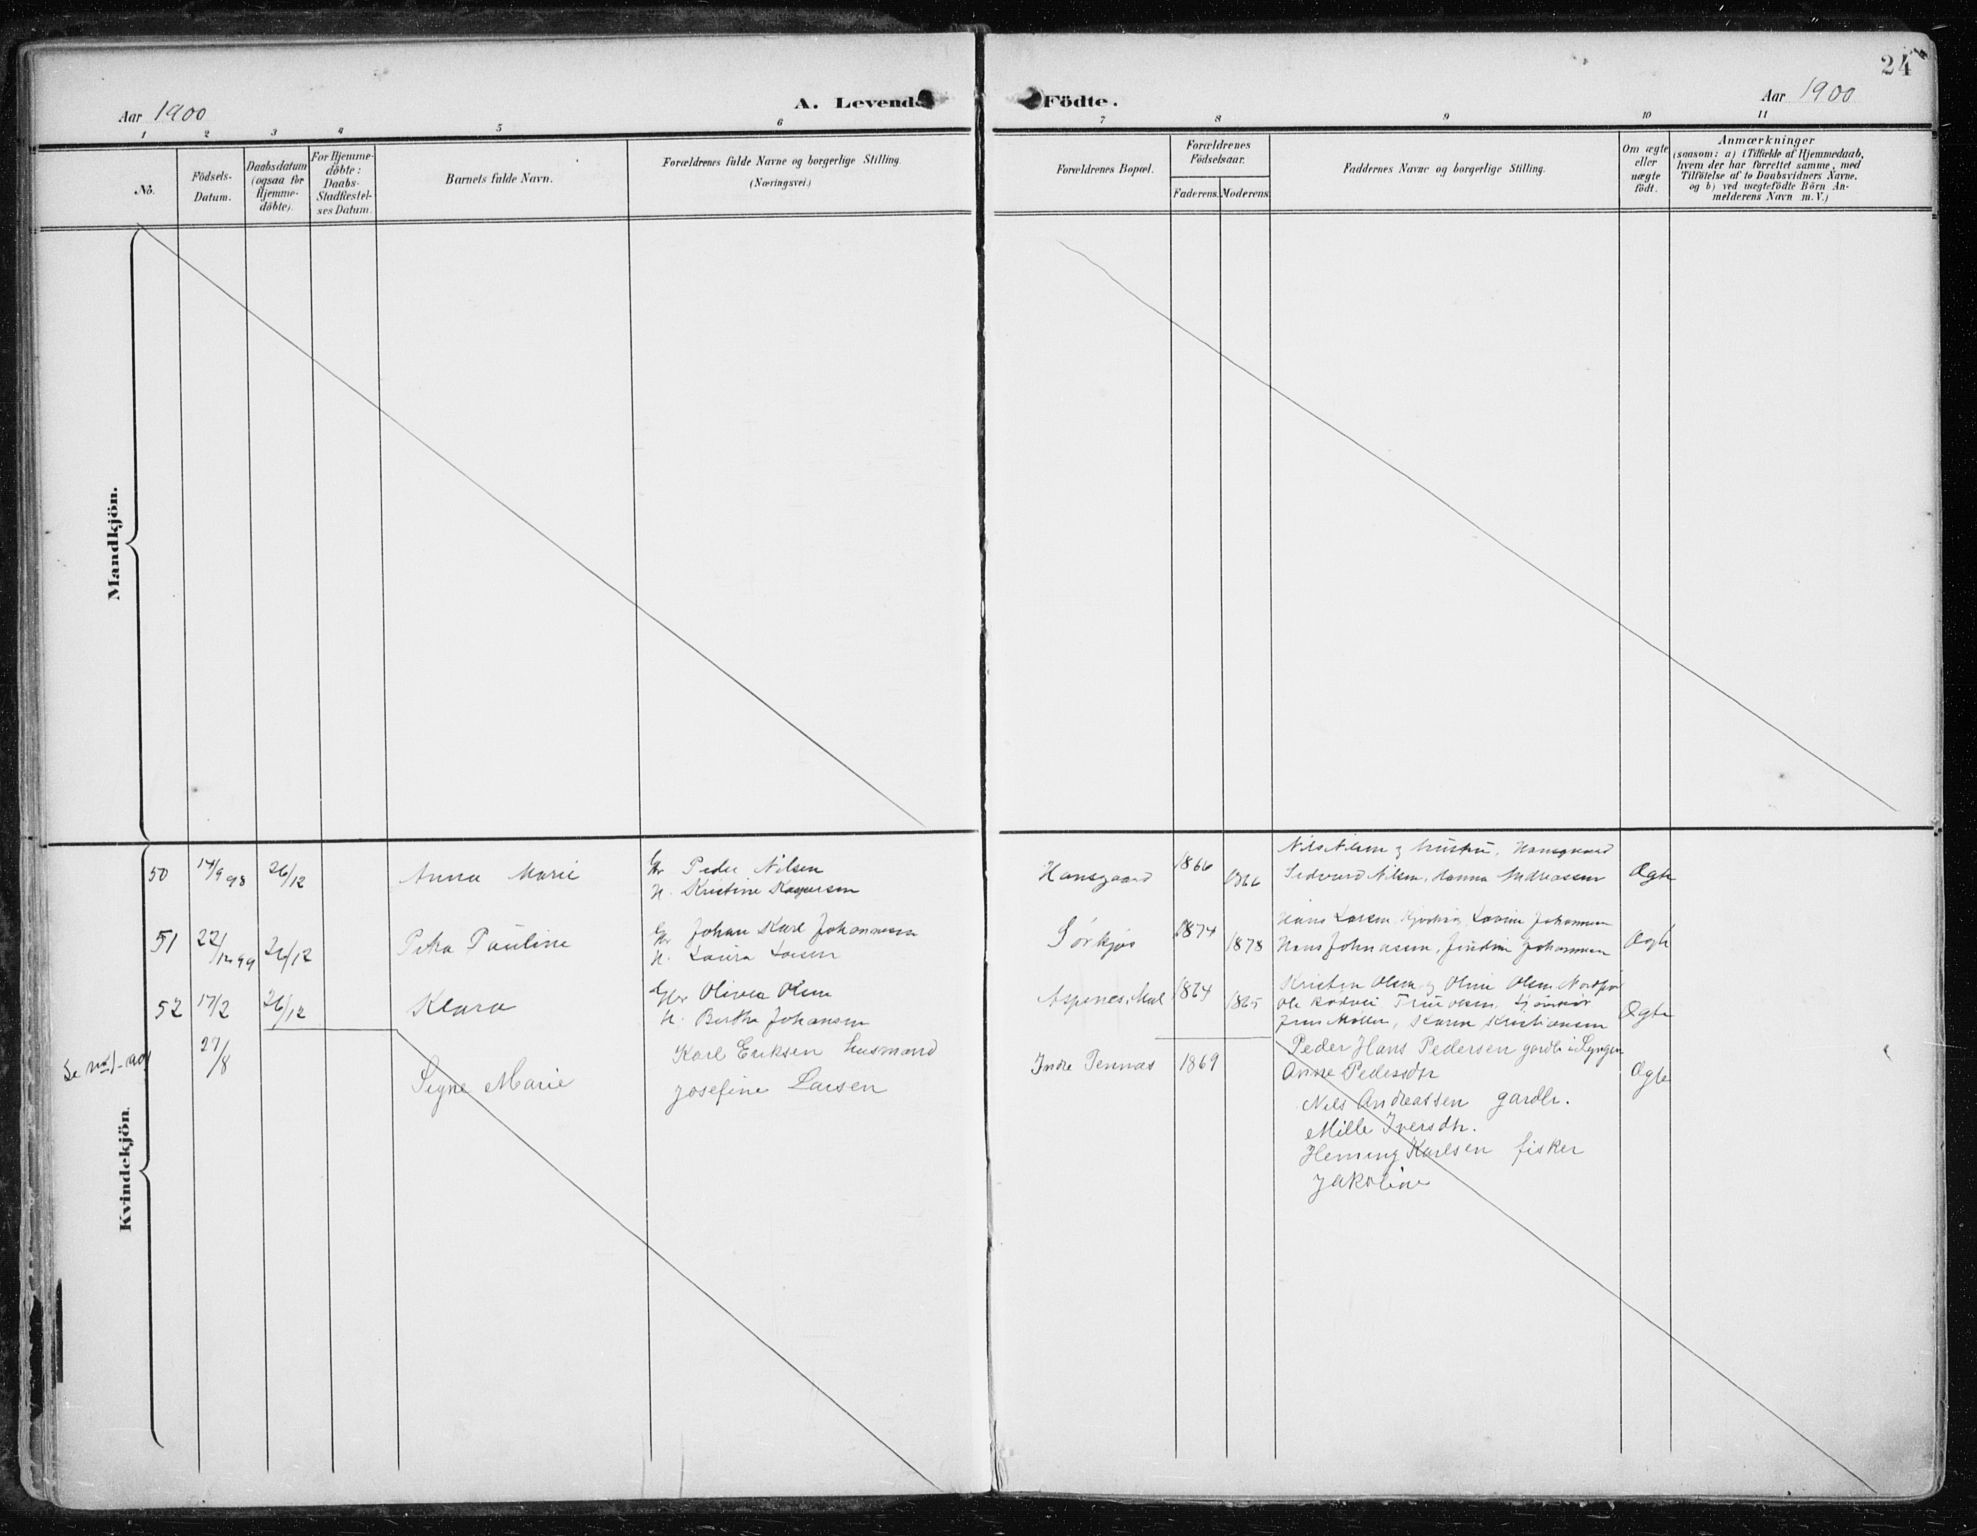 24
Aar 1900
A. Levende
Födte.
Aar 1900
1 2 3 4 5 6 7 8 9 10 11
No.
Födsels-
Datum.
Daabsdatum
(ogsaa for
Hjemme-
döbte).
For Hjemme-
döbte:
Daabs-
Stadfæstel-
ses Datum.
Barnets fulde Navn.
Forældrenes fulde Navne og borgerlige Stilling.
(Næringsvei.)
Forældrenes Bopæl.
Forældrenes
Födselsaar.
Faderens. Moderens.
Faddernes Navne og borgerlige Stilling.
Om ægte
eller
uægte
födt.
Anmærkninger
(saasom: a) i Tilfælde af Hjemmedaab,
hvem der har forrettet samme, med
Tilföielse af to Daabsvidners Navne,
og b) ved uægtefödte Börn An-
melderens Navn m. V.)
Mandkjön.
Kvindekjön.
50 14/9 98 26/12 Anna Marie
Gbr Peder Nilsen
H. Kristine Kaspersen
Hansgaard 1866 1866
Nils Nilsen og hustru, Hansgaard
Sedvard Nilsen, Hanna Andreassen
Ægte
51 22/12 99 26/12 Petra Pauline
Gbr Johan Karl Johannesen
H. Laura Larsen
Sørkjos 1874 1878
Hans Larsen Johannesen
Hans Johnasen, Johannesen
Ægte
52 17/2 26/12 Klara
Gbr Oliver Olsen
H. Berthe Johansen
Aspenes, Mal 1864 1865
Kristen Olsen og Oline Olsen
Ole Trine Olsen,
Jens Møller, Karen Kristiansen
Ægte
27/8
Signe Marie
Karl Eriksen husmand
Josefine Larsen
Indre Tennæs 1869
Peder Hans Pedersen gardbr i Lyngen
Anne Pedersdtr
Nils Andreassen gardbr.
Mille Iversdtr.
Heming Karlsen fisker
Jakoline
Ægte